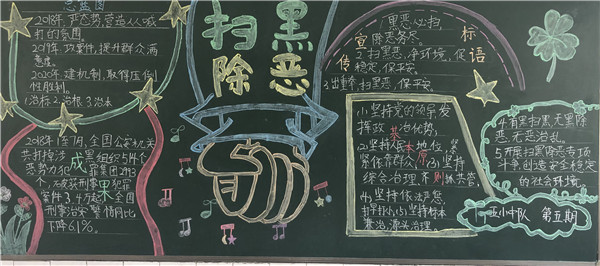 总蓝图
2018年,严态势,营造人人喊
打的氛围。
2019年,攻案件,提升群众满
意度。
2020年,建机制,取得压倒
性胜利。
1.治标 2.治根 3.治本
2018年1至7月,全国公安机关
共打掉涉
组织
恶势力犯
罪集团
万,破获刑事
犯罪
案件3.4万起,全国
刑事治安警情同比
下降6.1%。
成果
扫黑
除恶
宣传标语
1.黑恶必扫,
除恶务尽。
2.扫黑恶,净环境,促
稳定,保平安。
3.出重拳,扫黑恶,保平安。
(1)坚持党的领导,发
挥政治优势,
(2)坚持人民
主体地位,
紧依靠群众,(3)坚持
综合治理,齐抓共管,
(4)坚持依法严惩,
打早打小,(5)坚持标本
兼治,源头治理。
4.有黑扫黑,无黑除
恶,无恶治乱。
5.开展扫黑除恶专项
斗争,创造安全稳定
的社会环境。
中队 第五期